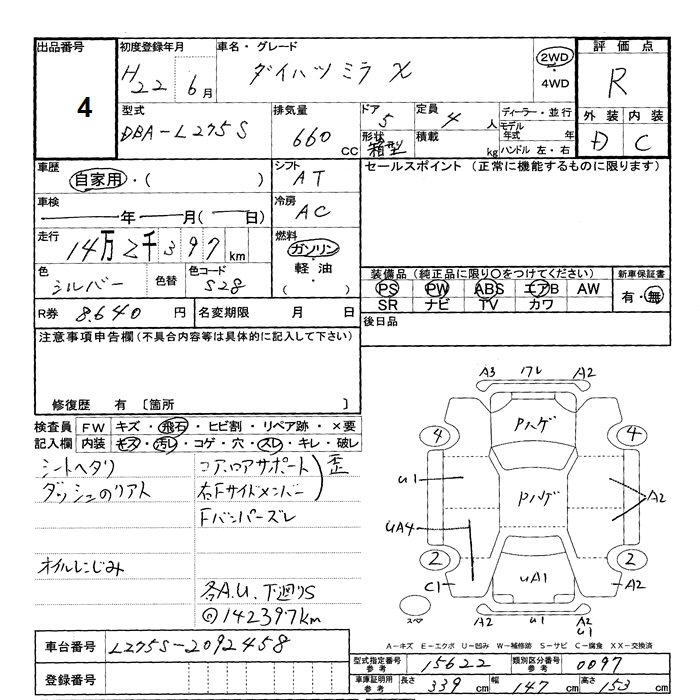 出品番号
4
初度登録年月
H22 6月
車名・グレード
ダイハツミラ X
2WD
・
4WD
評価点
R
型式
DBA-L275S
排気量
660 cc
ドア 5
形状 箱型
定員 4 人
積載 kg
ディーラー・並行
モデル年式 年
ハンドル 左・右
外装 内装
D C
車歴
自家用・( )
シフト
AT
セールスポイント (正常に機能するものに限ります)
車検
年 月( 日)
冷房
AC
走行
14万2千397 km
燃料
ガソリン
・
軽油
・
( )
色
シルバー
色替
色コード
S28
装備品(純正品に限り○をつけてください)
PS PW ABS エアB AW
SR ナビ TV カワ
新車保証書
有・無
R券 8.640 円
名変期限 月 日
後日品
注意事項申告欄(不具合内容等は具体的に記入して下さい)
修復歴 有 〔箇所 〕
検査員記入欄
FW キズ・飛石・ヒビ割・リペア跡・×要
内装 キズ・汚レ・コゲ・穴・スレ・キレ・破レ
シートヘタリ
ダッシュのリアト
コアロアサポート
右Fサイドメンバー
歪
Fバンパーズレ
オイルにじみ
各A.U、下廻りS
◎142397km
A3 ワレ A2
Pハゲ
4 4
U1
Pハゲ
A2
UA4
2 2
C1
UA1
A2
スペ
A2 U1 A2
U1
A-キズ E-エクボ U-凹み W-補修跡 S-サビ C-腐食 XX-交換済
車台番号 L275S-2092458
登録番号
型式指定番号 参考 15622
類別区分番号 参考 0097
車庫証明用 参考 長さ 339 cm 幅 147 cm 高さ 153 cm